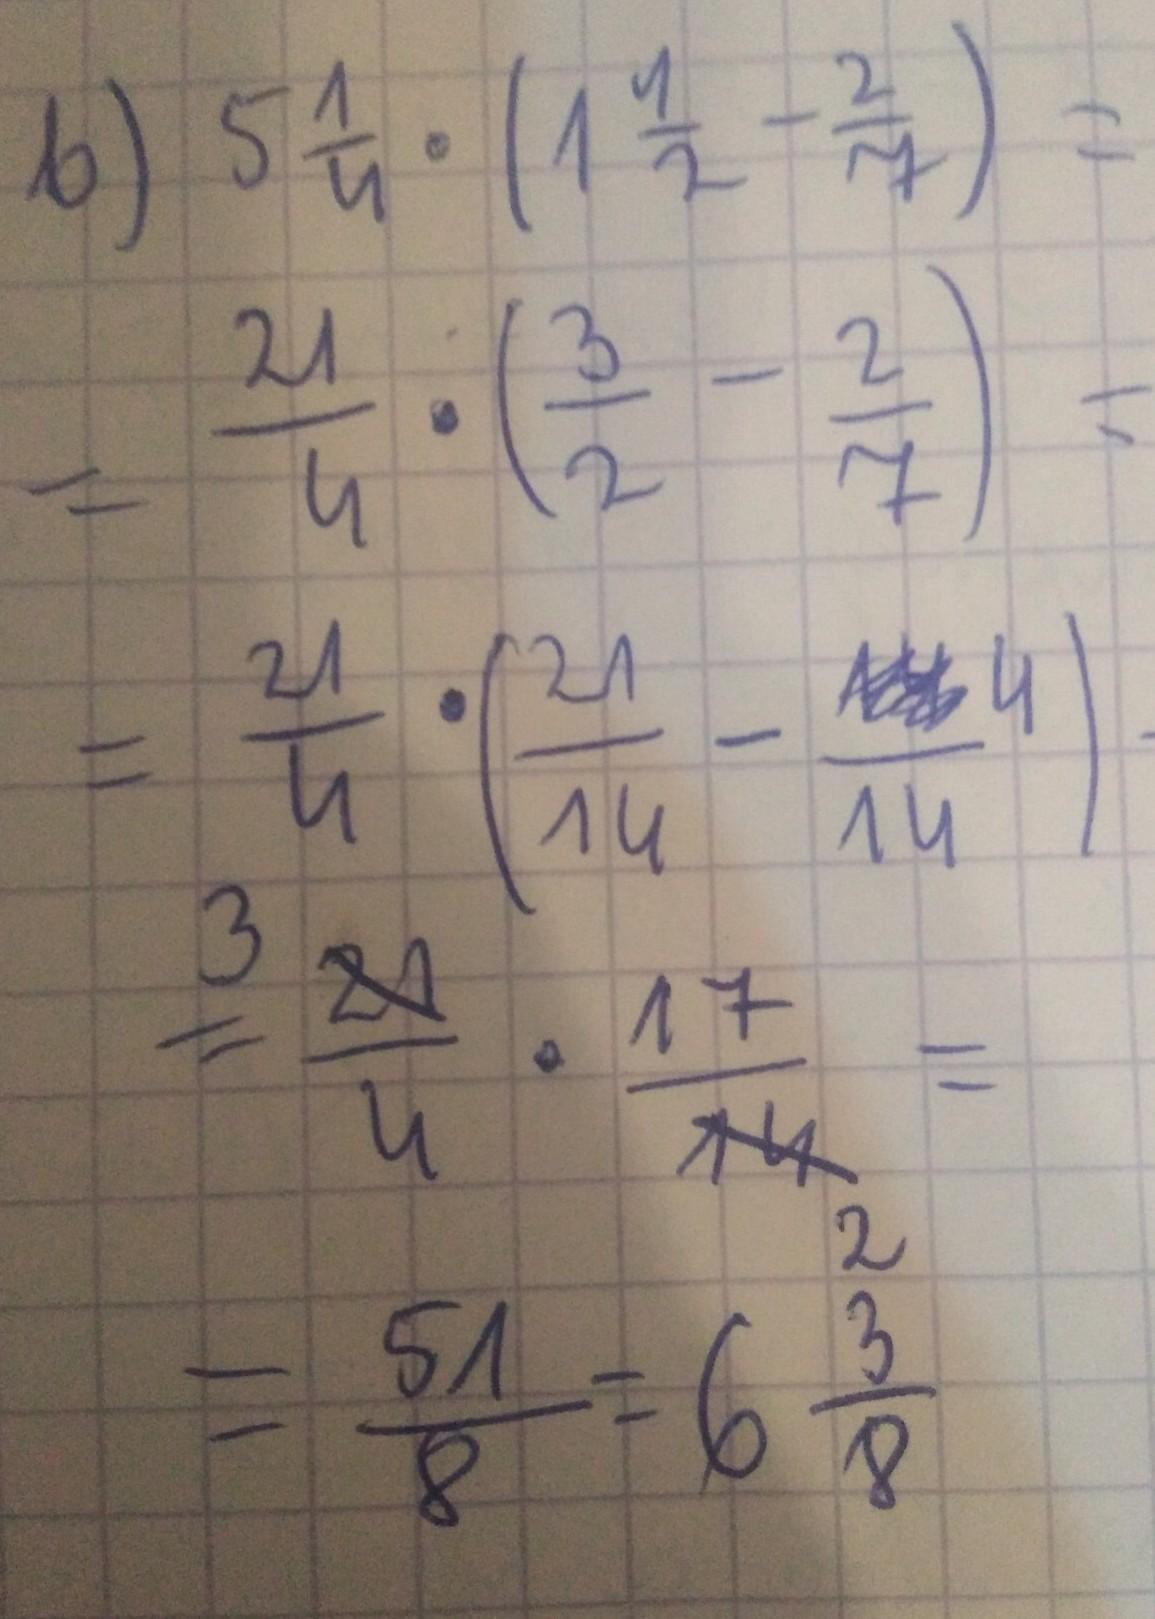 b) 5 1/4 · (1 1/2 - 2/7) =
= 21/4 · (3/2 - 2/7) =
= 21/4 · (21/14 - 4/14) -
= 3 21/4 · 17/14 2 =
= 51/8 = 6 3/8